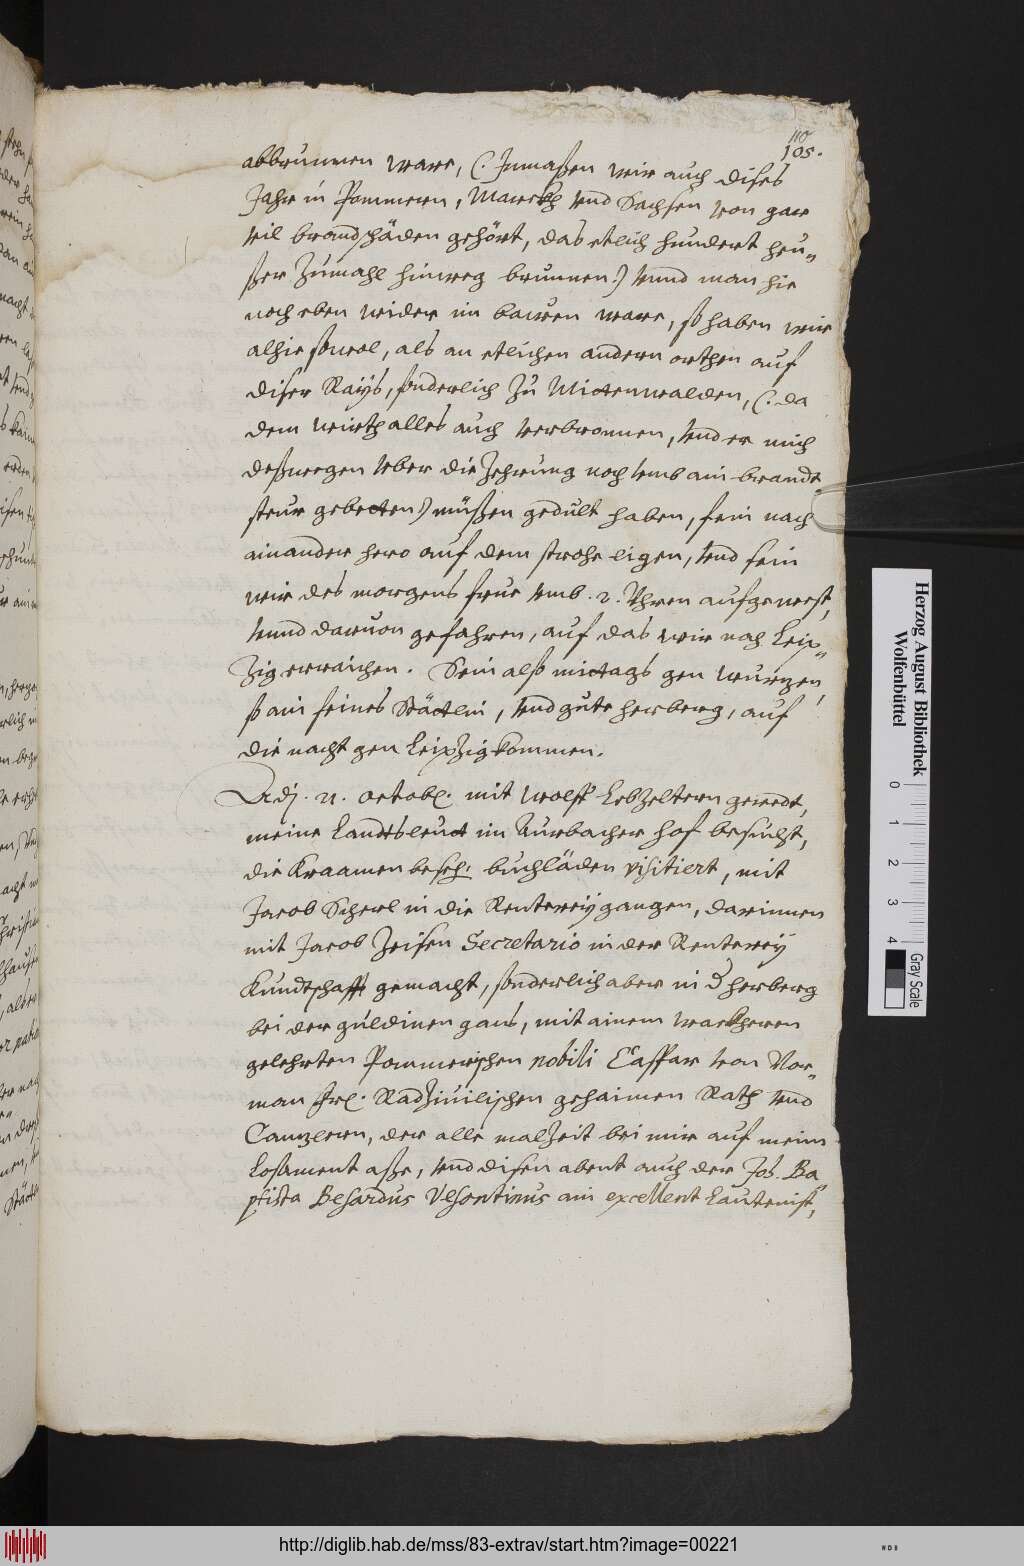 110
105.
abbrunnen ware, (. Jnmaßen wir auch dises
Jahr in Pommern, Marckh vnd Sachsen von gar
vil brandschäden gehört, das etlich hundert heu„
ßer zumahl hinweg brunnen.) vnnd man hie
noch eben wider im bawen ware, so haben wir
alhie sowol, als an etlichen andern orthen auf
diser Rays, sonderlich zu Mittenwalden, (. da
dem wirth alles auch verbronnen, vnd er mich
deßwegen vber die Zehrung noch vmb ain brandt
steur gebetten) müßen gedult haben, sein nach
ainander hero auf dem strohe ligen, vnd sein
wir des morgens frue vmb .2. Vhren aufgewest,
vnnd daruon gefahren, auf das wir noch Leip„
zig erraichen. Sein alß mittags gen Wurzen,
so ain feines Stättlin, vnd gute herberg, auf
die nacht gen Leipzig kommen.
Adj. 21. octobr. mit Wolff Lebzeltern geredt,
meine Landtsleut im Aurbacher hof besucht,
die Kraamen besch: buchläden visitiert, mit
Jacob Scherl in die Renterey gangen, darinnen
mit Jacob Zeisen Secretario in der Renterey
Kundtschafft gemacht, sonderlich aber in d herberg
bei der guldinen gans, mit ainem wackheren
gelehrten Pommerischen nobili Caspar von Vor„
man Frl. Radziuilischen gehaimen Rath vnd
Canzlern, der alle malzeit bei mir auf meim
Losament aße, vnd disen abent auch der Joh. Ba„
ptista Besardus Vesontinus ain excellent Lautenist,
Herzog August Bibliothek
Wolfenbüttel
0 1 2 3 4
Gray Scale
http://diglib.hab.de/mss/83-extrav/start.htm?image=00221
WDB